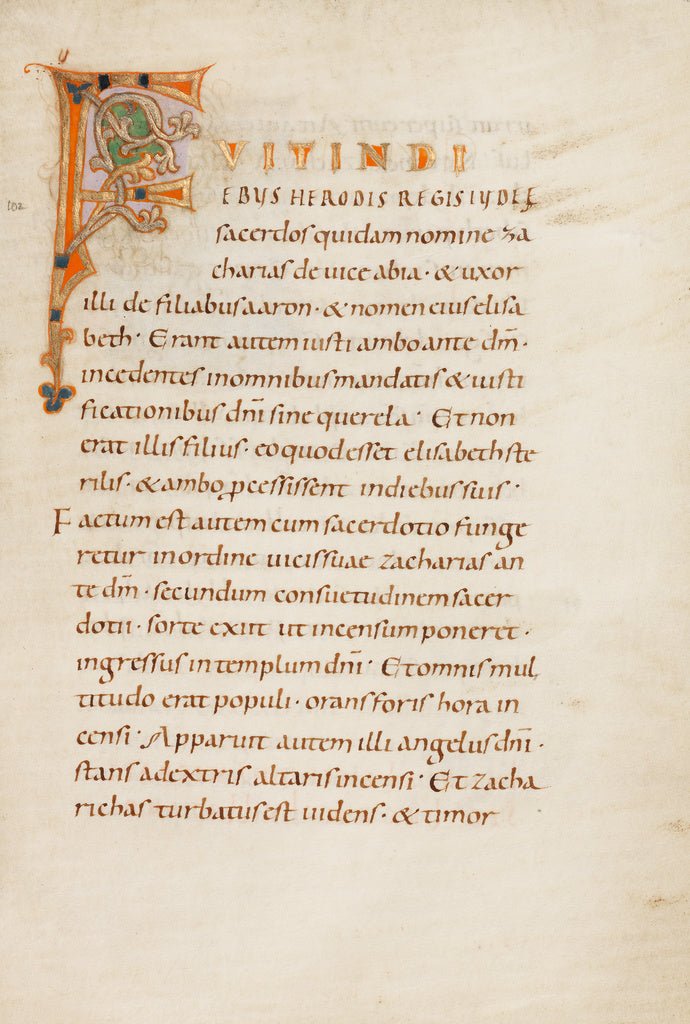 FVITINDI
EBUS HERODIS REGIS IUDEĘ
sacerdos quidam nomine za
charias de uice abia· & uxor
illi de filiabus aaron· & nomen eius elisa
beth· Erant autem iusti ambo ante dm̄·
incedentes in omnibus mandatis & iusti
ficationibus dnī sine querela· Et non
erat illis filius· eo quod esset elisabeth ste
rilis· & ambo ꝓcessissent in diebus suis·
Factum est autem cum sacerdotio funge
retur in ordine uicis suae zacharias an
te dm̄· secundum consuetudinem sacer
dotii· sorte exiit ut incensum poneret·
ingressus in templum dnī· Et omnis mul
titudo erat populi· orans foris hora in
censi· Apparuit autem illi angelus dnī·
stans a dextris altaris incensi· Et zacha
richas turbatus est uidens· & timor